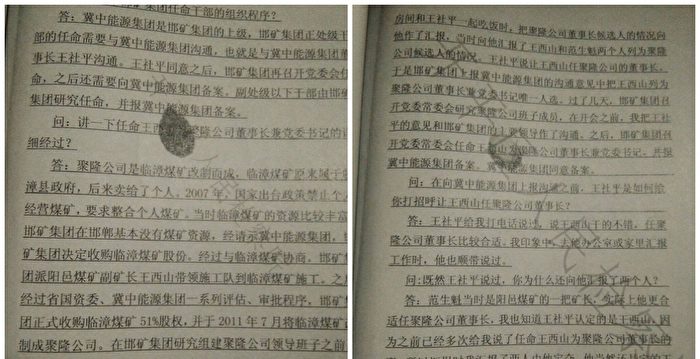 集团任命干部的组织程序?
答:冀中能源集团是邯矿集团的上级,邯矿集团正处级干
部的任命需要与冀中能源集团沟通,也就是与冀中能源集团董
事长王社平沟通。王社平同意之后,邯矿集团再召开党委会任
命,之后还需要向冀中能源集团备案。副处级以下干部由邯矿
集团研究任命,并报冀中能源集团备案。
问:讲一下任命王西山聚隆公司董事长兼党委书记的详
细经过?
答:聚隆公司是临漳煤矿改制而成,临漳煤矿原来属于
漳县政府,后来卖给了个人。2007年,国家出台政策禁止个人
经营煤矿,要求整合个人煤矿。当时临漳煤矿的资源比较丰富
邯矿集团在邯郸基本没有煤矿资源,经请示冀中能源集团,
矿集团决定收购临漳煤矿股份。经过与临漳煤矿协商,邯矿
团派阳邑煤矿副矿长王西山带领施工队到临漳煤矿施工。之后
经过省国资委、冀中能源集团一系列评估、审批程序,邯矿集
团正式收购临漳煤矿51%股权,并于2011年7月将临漳煤矿改
制成聚隆公司。在邯矿集团研究组建聚隆公司领导班子之前
房间和王社平一起吃饭时,把聚隆公司董事长候选人的情况向
他作了汇报,当时向他汇报了王西山和范生魁两个人列为聚隆
公司候选人的情况。王社平说让王西山任聚隆公司的董事长。
于是邯矿集团上报冀中能源集团的沟通意见中把王西山列为
聚隆公司董事长兼党委书记唯一人选。过了几天,邯矿集团召
开党委常委会研究聚隆公司班子成员,在开会之前,我把王社
平的意见和邯矿集团的主要领导作了沟通。之后,邯矿集团召
开党委常委会任命王西山为聚隆公司董事长兼党委书记,并报
冀中能源集团备案。冀中能源集团同意备案。
问:在向冀中能源集团上报沟通之前,王社平是如何给
你打招呼让王西山任董事长?
答:王社平给我打电话说过,说王西山干的不错,任聚
隆公司董事长比较合适。我印象中,去他办公室或家里汇报
工作时,他也顺带说过。
问:既然王社平说过,你为什么还向他汇报了两个人?
答:范生魁当时是阳邑煤矿的一把矿长,实际上他更合
适任聚隆公司董事长,我也知道王社平认定的是王西山,因
为之前已经多次给我说了任命王西山为聚隆公司董事长的